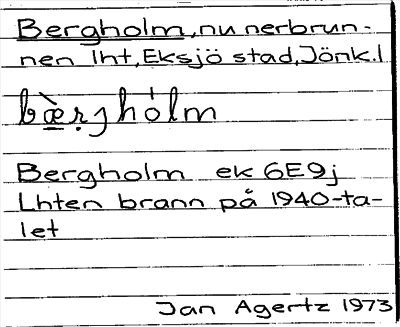 Bergholm, nu nerbrun-
nen lht, Eksjö stad, Jönk.l
bæ̀rghólm
Bergholm ek 6E9j
Lhten brann på 1940-ta-
let
Jan Agertz 1973